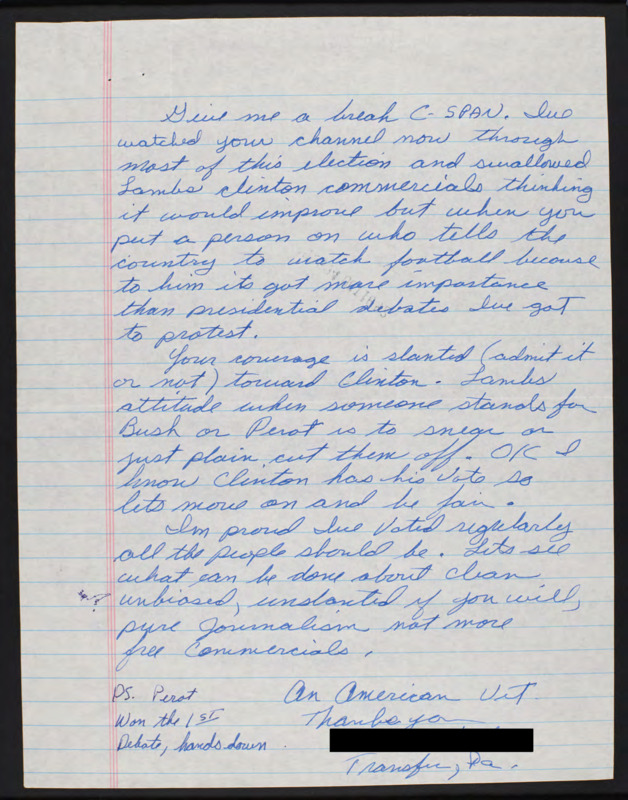 Give me a break C-SPAN. Ive
watched your channel now through
most of this election and swallowed
Lambs clinton commercials thinking
it would improve but when you
put a person on who tells the
country to watch football because
to him its got more importance
than presidential debates Ive got
to protest.
Your coverage is slanted (admit it
or not) toward Clinton. Lambs
attitude when someone stands for
Bush or Perot is to snear or
just plain cut them off. OK I
know Clinton has his vote so
lets move on and be fair.
Im proud Ive voted regularly
all the people should be. Lets see
what can be done about clean
unbiased, unslanted if you will,
pure Journalism not more
free Commercials.
PS. Perot
Won the 1ST
Debate, hands down.
An American Vet
Thanks you
Transfer, Pa.